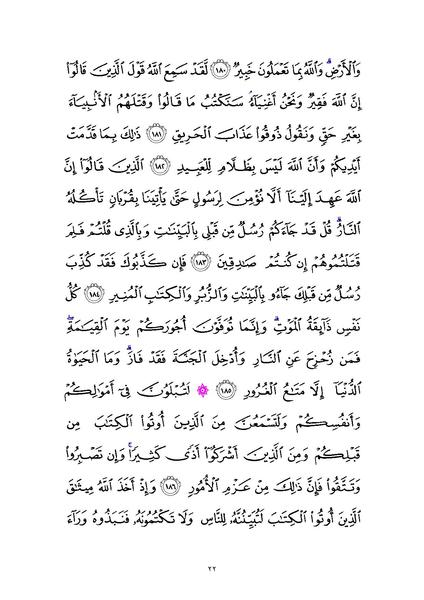 وَٱلْأَرْضِۗ وَٱللَّهُ بِمَا تَعْمَلُونَ خَبِيرٌ ١٨٠ لَّقَدْ سَمِعَ ٱللَّهُ قَوْلَ ٱلَّذِينَ قَالُوٓا۟
إِنَّ ٱللَّهَ فَقِيرٌ وَنَحْنُ أَغْنِيَآءُۘ سَنَكْتُبُ مَا قَالُوا۟ وَقَتْلَهُمُ ٱلْأَنۢبِيَآءَ
بِغَيْرِ حَقٍّ وَنَقُولُ ذُوقُوا۟ عَذَابَ ٱلْحَرِيقِ ١٨١ ذَٰلِكَ بِمَا قَدَّمَتْ
أَيْدِيكُمْ وَأَنَّ ٱللَّهَ لَيْسَ بِظَلَّامٍ لِّلْعَبِيدِ ١٨٢ ٱلَّذِينَ قَالُوٓا۟ إِنَّ
ٱللَّهَ عَهِدَ إِلَيْنَآ أَلَّا نُؤْمِنَ لِرَسُولٍ حَتَّىٰ يَأْتِيَنَا بِقُرْبَانٍ تَأْكُلُهُ
ٱلنَّارُۗ قُلْ قَدْ جَآءَكُمْ رُسُلٌ مِّن قَبْلِى بِٱلْبَيِّنَٰتِ وَبِٱلَّذِى قُلْتُمْ فَلِمَ
قَتَلْتُمُوهُمْ إِن كُنتُمْ صَٰدِقِينَ ١٨٣ فَإِن كَذَّبُوكَ فَقَدْ كُذِّبَ
رُسُلٌ مِّن قَبْلِكَ جَآءُو بِٱلْبَيِّنَٰتِ وَٱلزُّبُرِ وَٱلْكِتَٰبِ ٱلْمُنِيرِ ١٨٤ كُلُّ
نَفْسٍ ذَآئِقَةُ ٱلْمَوْتِۗ وَإِنَّمَا تُوَفَّوْنَ أُجُورَكُمْ يَوْمَ ٱلْقِيَٰمَةِۖ
فَمَن زُحْزِحَ عَنِ ٱلنَّارِ وَأُدْخِلَ ٱلْجَنَّةَ فَقَدْ فَازَۗ وَمَا ٱلْحَيَوٰةُ
ٱلدُّنْيَآ إِلَّا مَتَٰعُ ٱلْغُرُورِ ١٨٥ ۞ لَتُبْلَوُنَّ فِىٓ أَمْوَٰلِكُمْ
وَأَنفُسِكُمْ وَلَتَسْمَعُنَّ مِنَ ٱلَّذِينَ أُوتُوا۟ ٱلْكِتَٰبَ مِن
قَبْلِكُمْ وَمِنَ ٱلَّذِينَ أَشْرَكُوٓا۟ أَذًى كَثِيرًاۚ وَإِن تَصْبِرُوا۟
وَتَتَّقُوا۟ فَإِنَّ ذَٰلِكَ مِنْ عَزْمِ ٱلْأُمُورِ ١٨٦ وَإِذْ أَخَذَ ٱللَّهُ مِيثَٰقَ
ٱلَّذِينَ أُوتُوا۟ ٱلْكِتَٰبَ لَتُبَيِّنُنَّهُۥ لِلنَّاسِ وَلَا تَكْتُمُونَهُۥ فَنَبَذُوهُ وَرَآءَ
٢٢